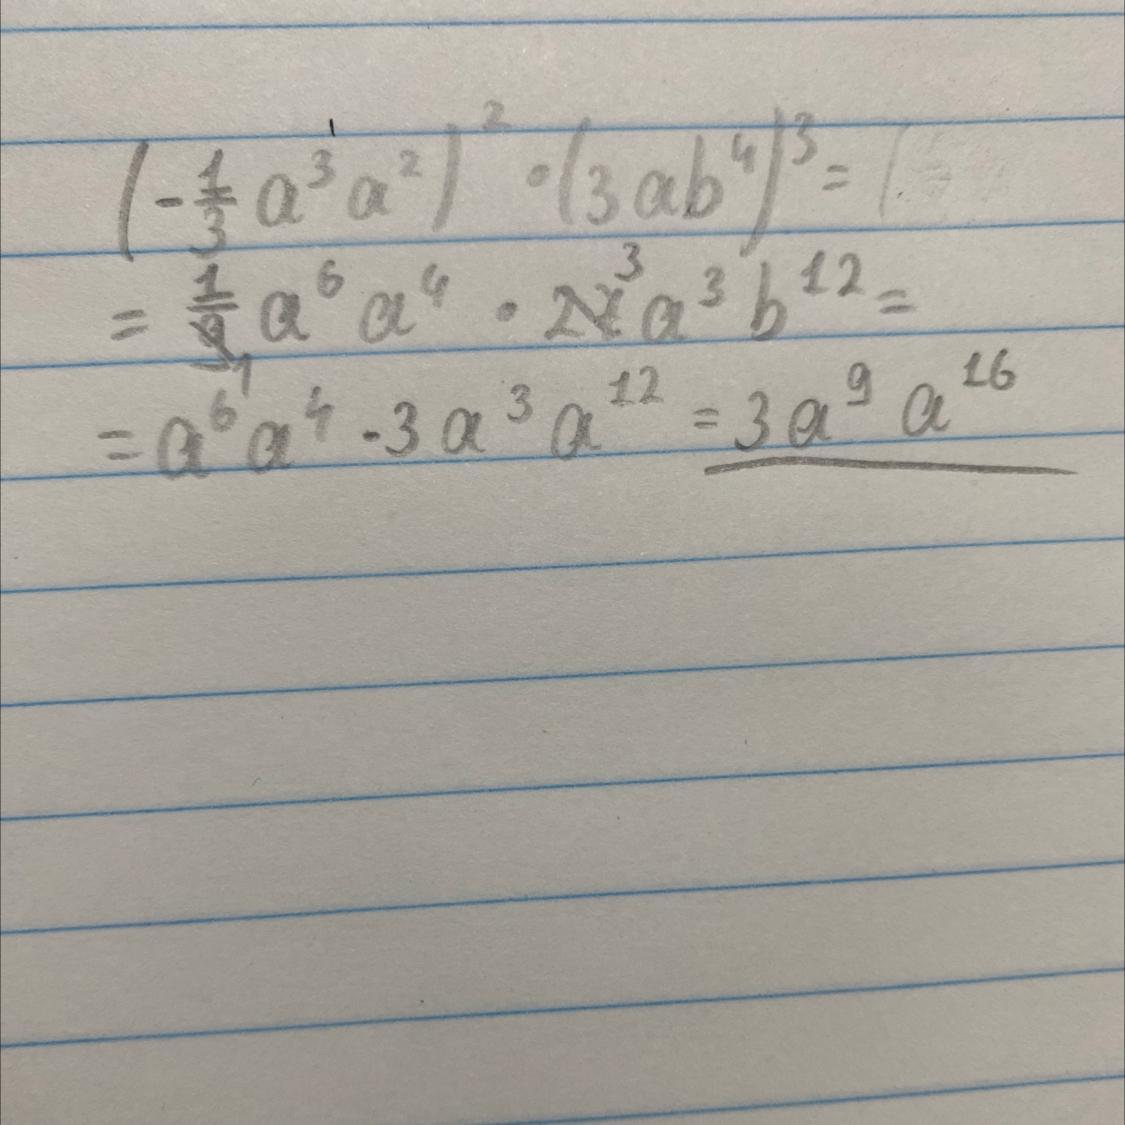 (-1/3 a³ a²)² · (3ab⁴)³ =
= 1/9 1 a⁶ a⁴ · 27 3 a³ b¹² =
= a⁶ a⁴ · 3 a³ a¹² = 3 a⁹ a¹⁶